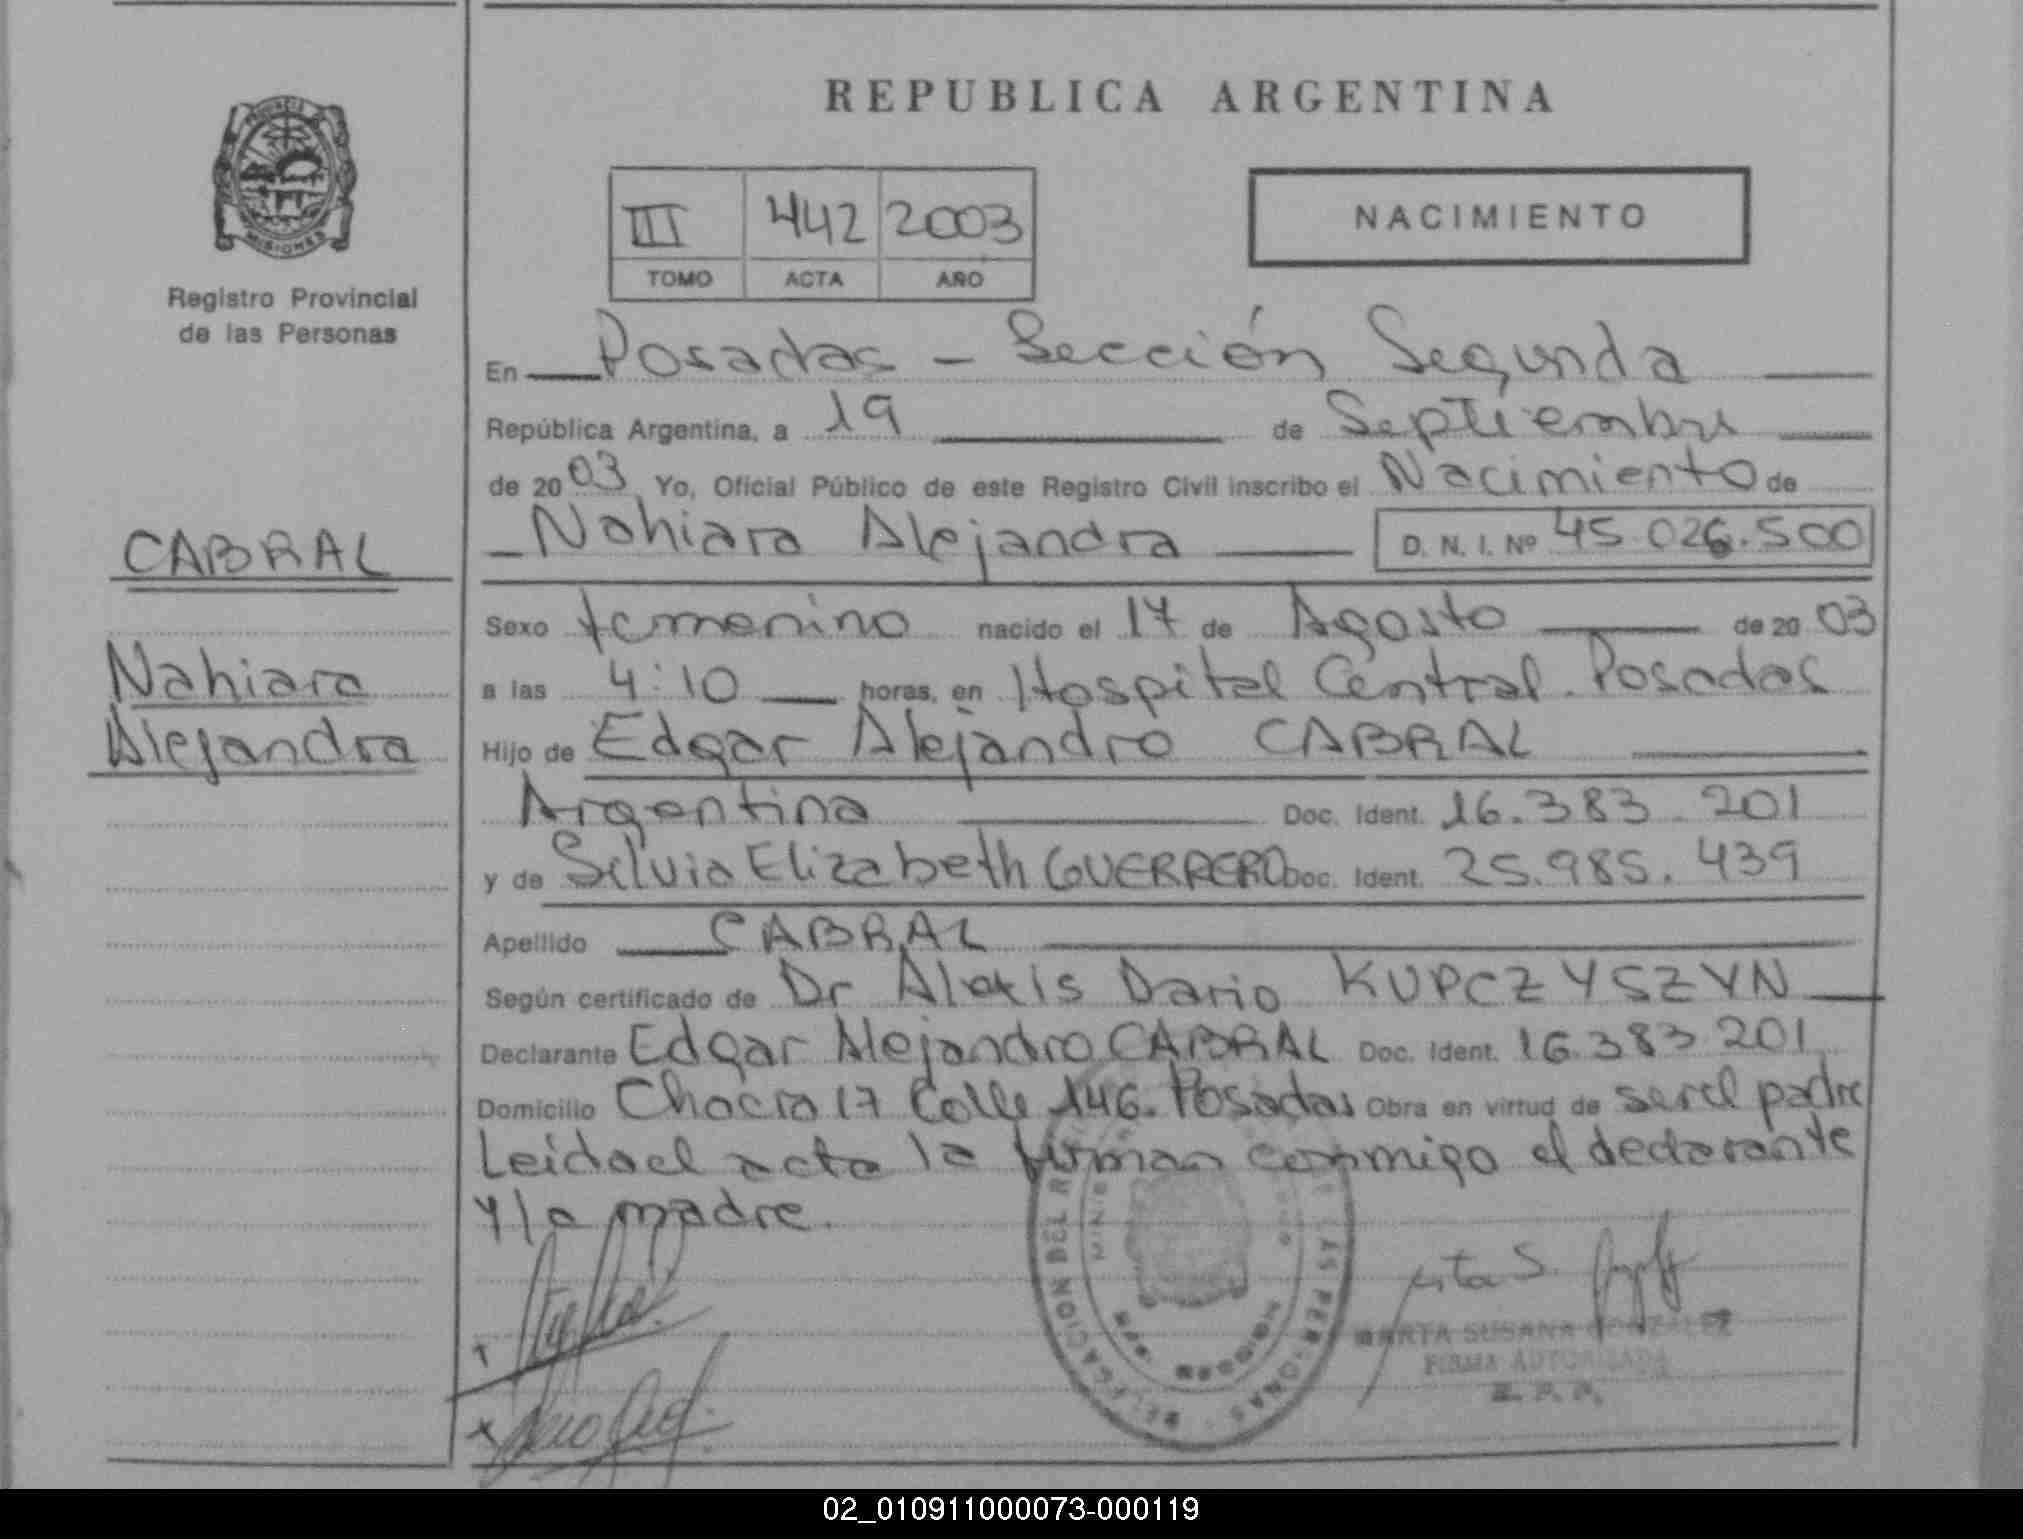 REPUBLICA ARGENTINA
PROVINCIA
MISIONES
Registro Provincial
de las Personas
III 442 2003
TOMO ACTA AÑO
NACIMIENTO
En Posadas - Sección Segunda
República Argentina, a 19 de Septiembre
de 2003 Yo, Oficial Público de este Registro Civil inscribo el Nacimiento de
Nahiara Alejandra D. N. I. Nº 45.026.500
CABRAL
Nahiara
Alejandra
Sexo femenino nacido el 17 de Agosto de 2003
a las 4:10 horas, en Hospital Central. Posadas
Hijo de Edgar Alejandro CABRAL
Argentina Doc. Ident. 16.383.201
y de Silvia Elizabeth GUERRERO Doc. Ident. 25.985.439
Apellido CABRAL
Según certificado de Dr Alexis Dario KUPCZYSZYN
Declarante Edgar Alejandro CABRAL Doc. Ident. 16.383.201
Domicilio Chacra 17 Calle 146. Posadas Obra en virtud de ser el padre
Leida el acta la firman conmigo el declarante
y la madre.
DELEGACION DEL LAS PERSONAS
MARTA SUSANA GONZALEZ
FIRMA AUTORIZADA
02_010911000073-000119